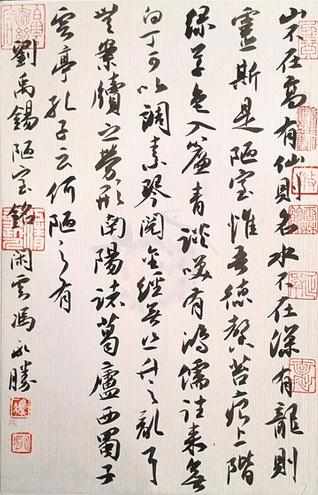 山不在高有仙則名水不在深有龍則
靈斯是陋室惟吾德馨苔痕上階
綠草色入簾青談笑有鴻儒往來無
白丁可以調素琴閱金經無絲竹之亂耳
無案牘之勞形南陽諸葛廬西蜀子
雲亭孔子云何陋之有
劉禹錫陋室銘 閑雲馮永勝